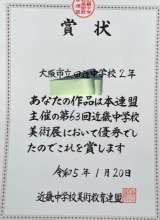 賞状
大阪市立田辺中学校2年
あなたの作品は本連盟
主催の第63回近畿中学校
美術展において優秀でし
たのでこれを賞します
令和5年1月20日
近畿中学校美術教育連盟